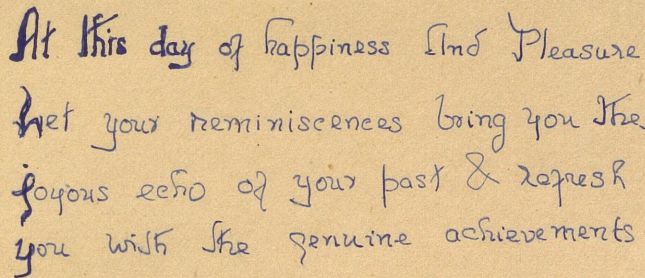 At this day of happiness And Pleasure
Let your reminiscences bring you the
joyous echo of your past & refresh
you with the genuine achievements